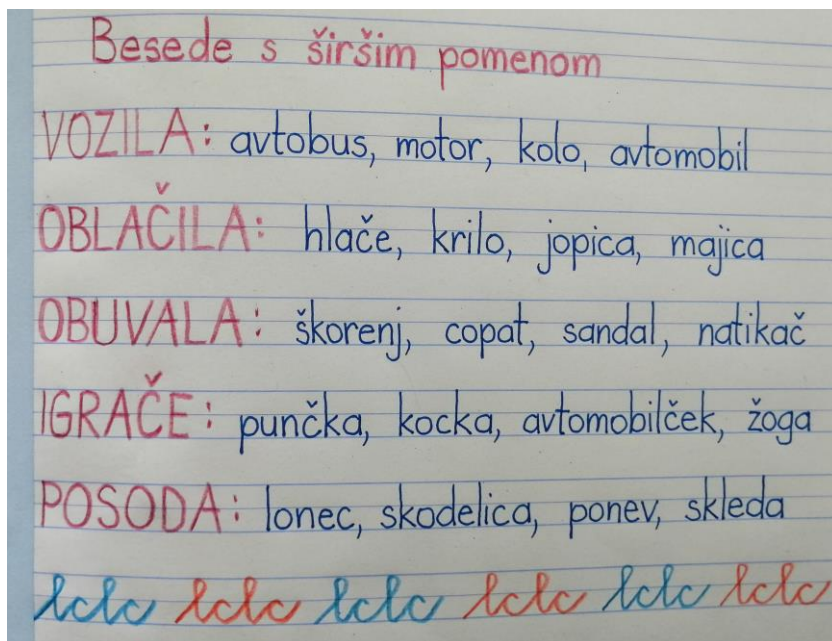 Besede s širšim pomenom
VOZILA: avtobus, motor, kolo, avtomobil
OBLAČILA: hlače, krilo, jopica, majica
OBUVALA: škorenj, copat, sandal, natikač
IGRAČE: punčka, kocka, avtomobilček, žoga
POSODA: lonec, skodelica, ponev, skleda